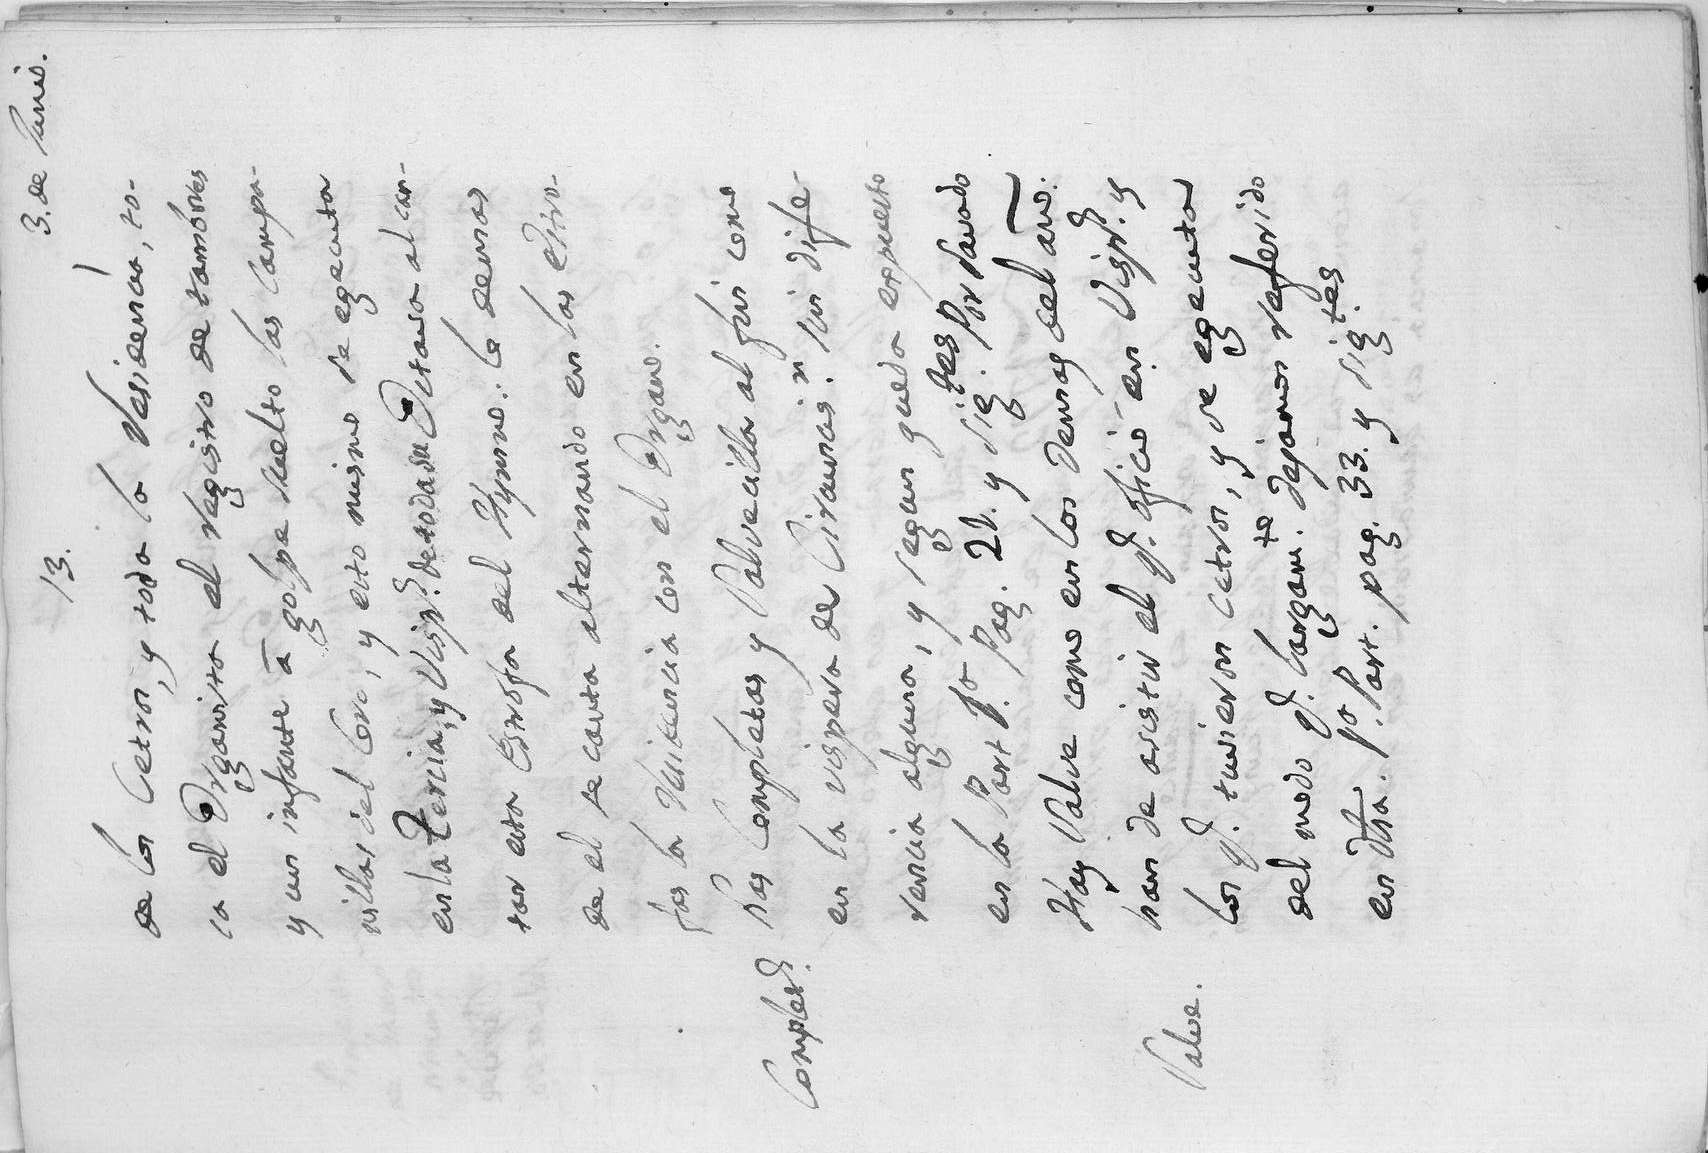 13.
3. de Junio.
de los Cetros, y toda la Residencia, to-
ca el Organista el registro de tambores
y un infante à golpe suelto las campa-
nillas del Coro, y esto mismo se egecuta
en la Tercia, y Visp.s de toda su Octava al can-
tar esta Estrofa del Hymno: lo demas
de el se canta alternando en las estro-
fas la Residencia con el Organo.
Complet.s Las Completas y Salvecilla al fin como
en la vispera de Circuncis.n sin dife-
rencia alguna, y segun queda expuesto
en la Part 1.a Pag. 21. y sig.tes Por Sarado
Hay Salve como en los demas del año:
han de asistir el q.e oficiò en Visp.s y
Salve. los q.e tuvieron cetros, y se egecuta
del modo q.e largam.te dejamos referido
en dha. 1.a Part. pag. 33. y sig.tes